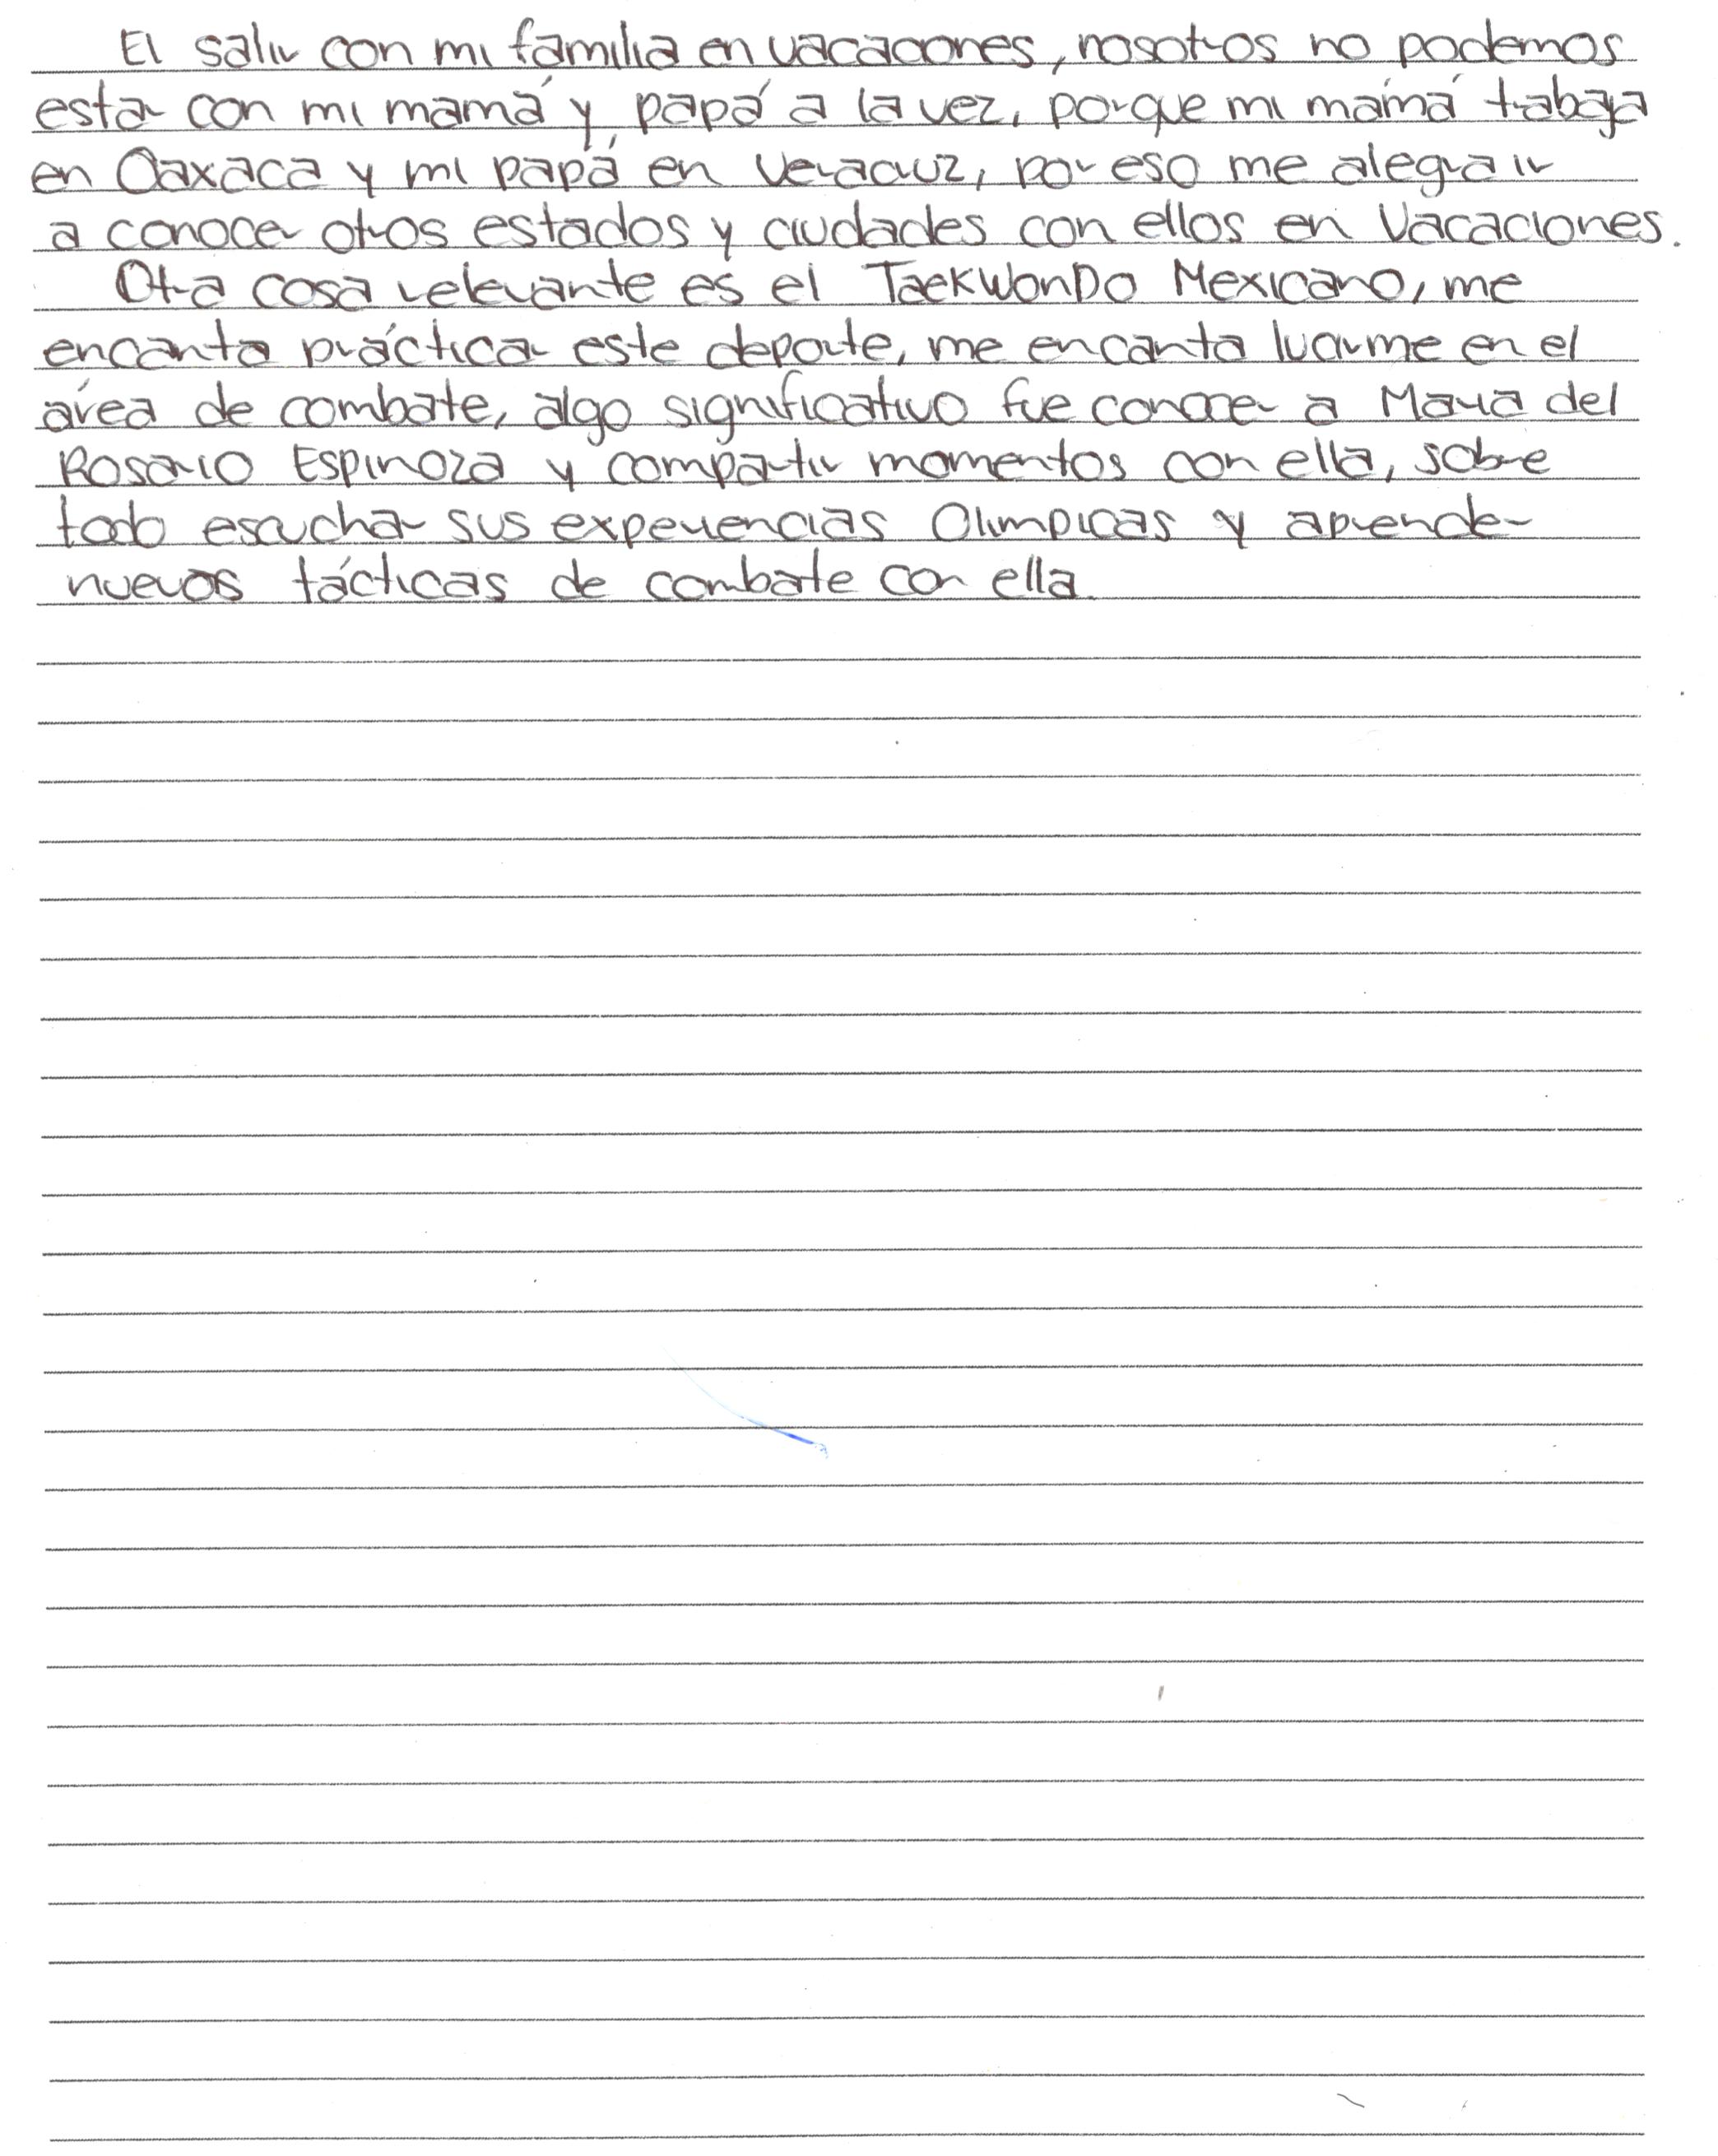 El salir con mi familia en vacaciones, nosotros no podemos
estar con mi mamá y papá a la vez, porque mi mamá trabaja
en Oaxaca y mi papá en Veracruz, por eso me alegra ir
a conocer otros estados y ciudades con ellos en Vacaciones.
Otra cosa relevante es el TaekWonDo Mexicano, me
encanta prácticar este deporte, me encanta lucirme en el
área de combate, algo significativo fue conocer a Maria del
Rosario Espinoza y compartir momentos con ella, sobre
todo escuchar sus experiencias Olimpicas y aprender
nuevas tácticas de combate con ella.